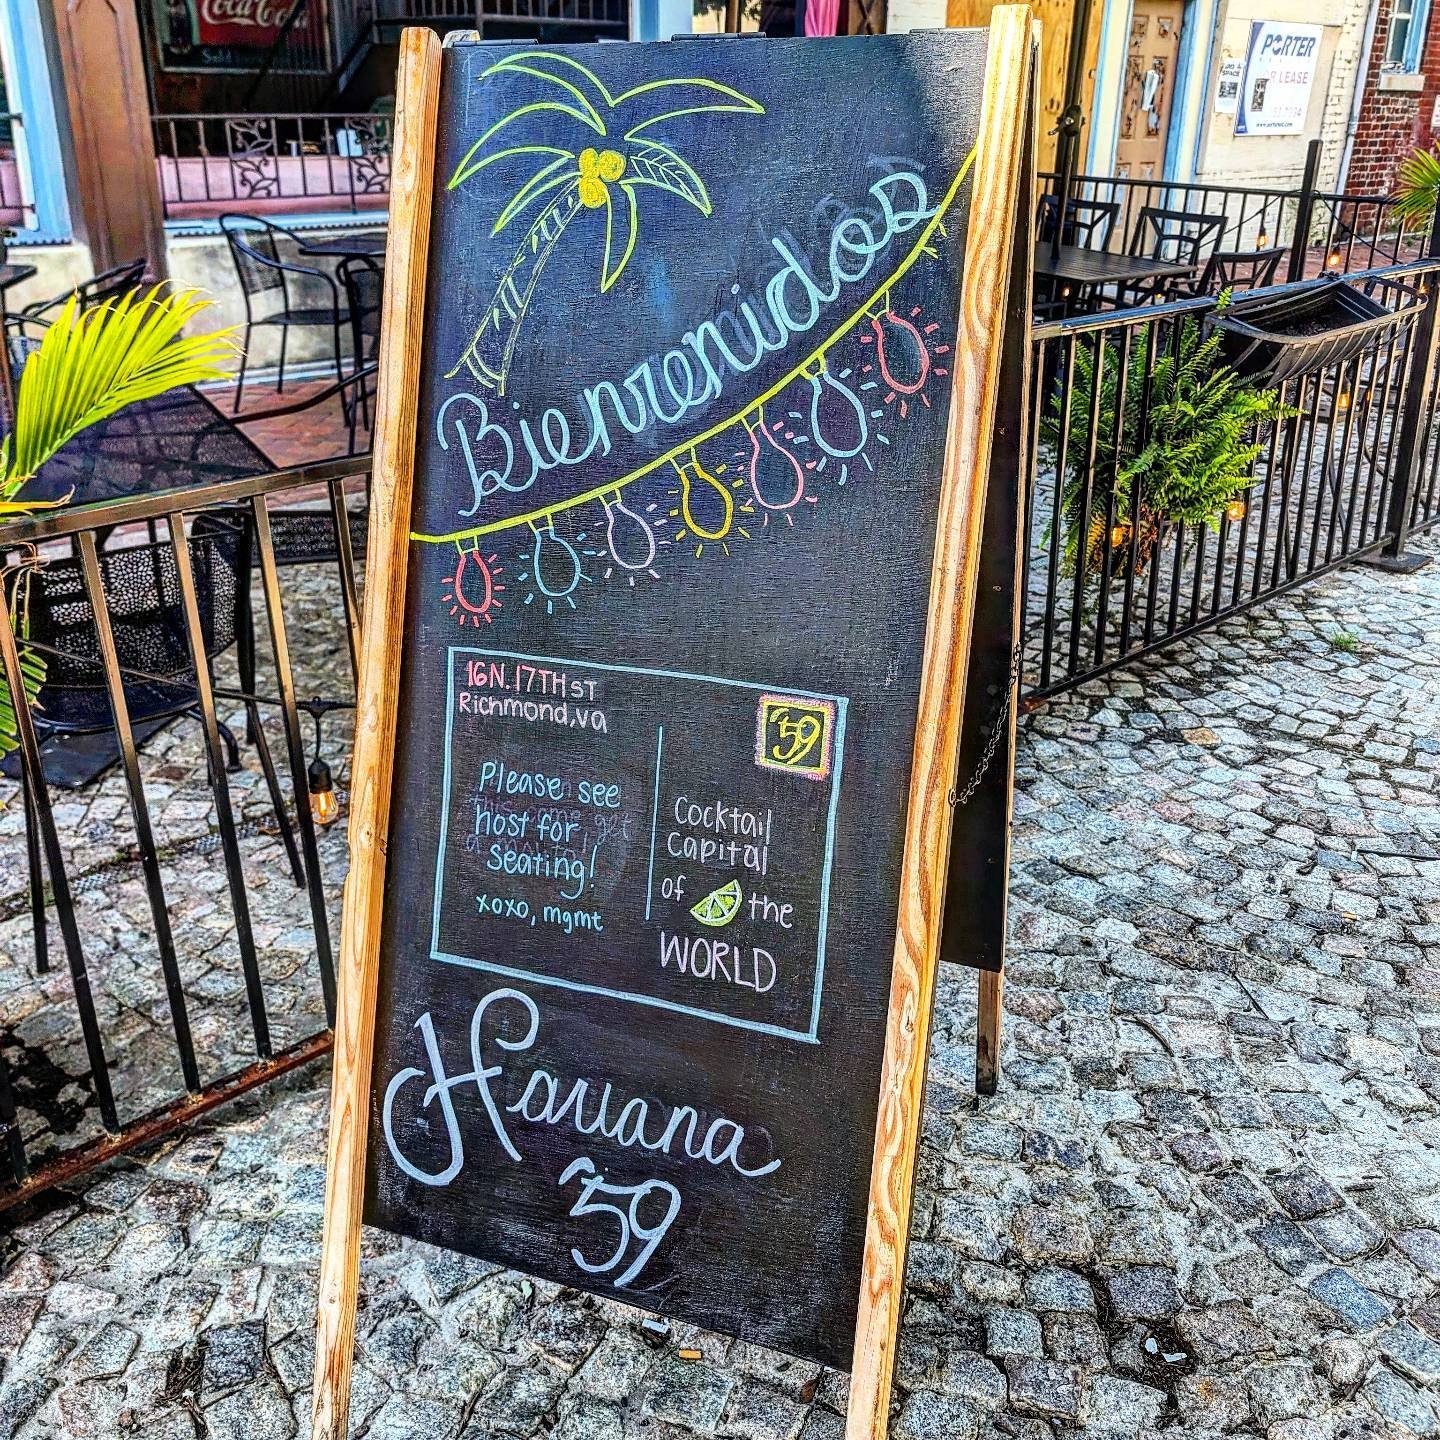 Coca-Cola
PORTER
R LEASE
Bienvenidos
16 N. 17TH ST
Richmond, va
'59
Please see
host for
seating!
xoxo, mgmt
Cocktail
Capital
of the
WORLD
Havana
'59